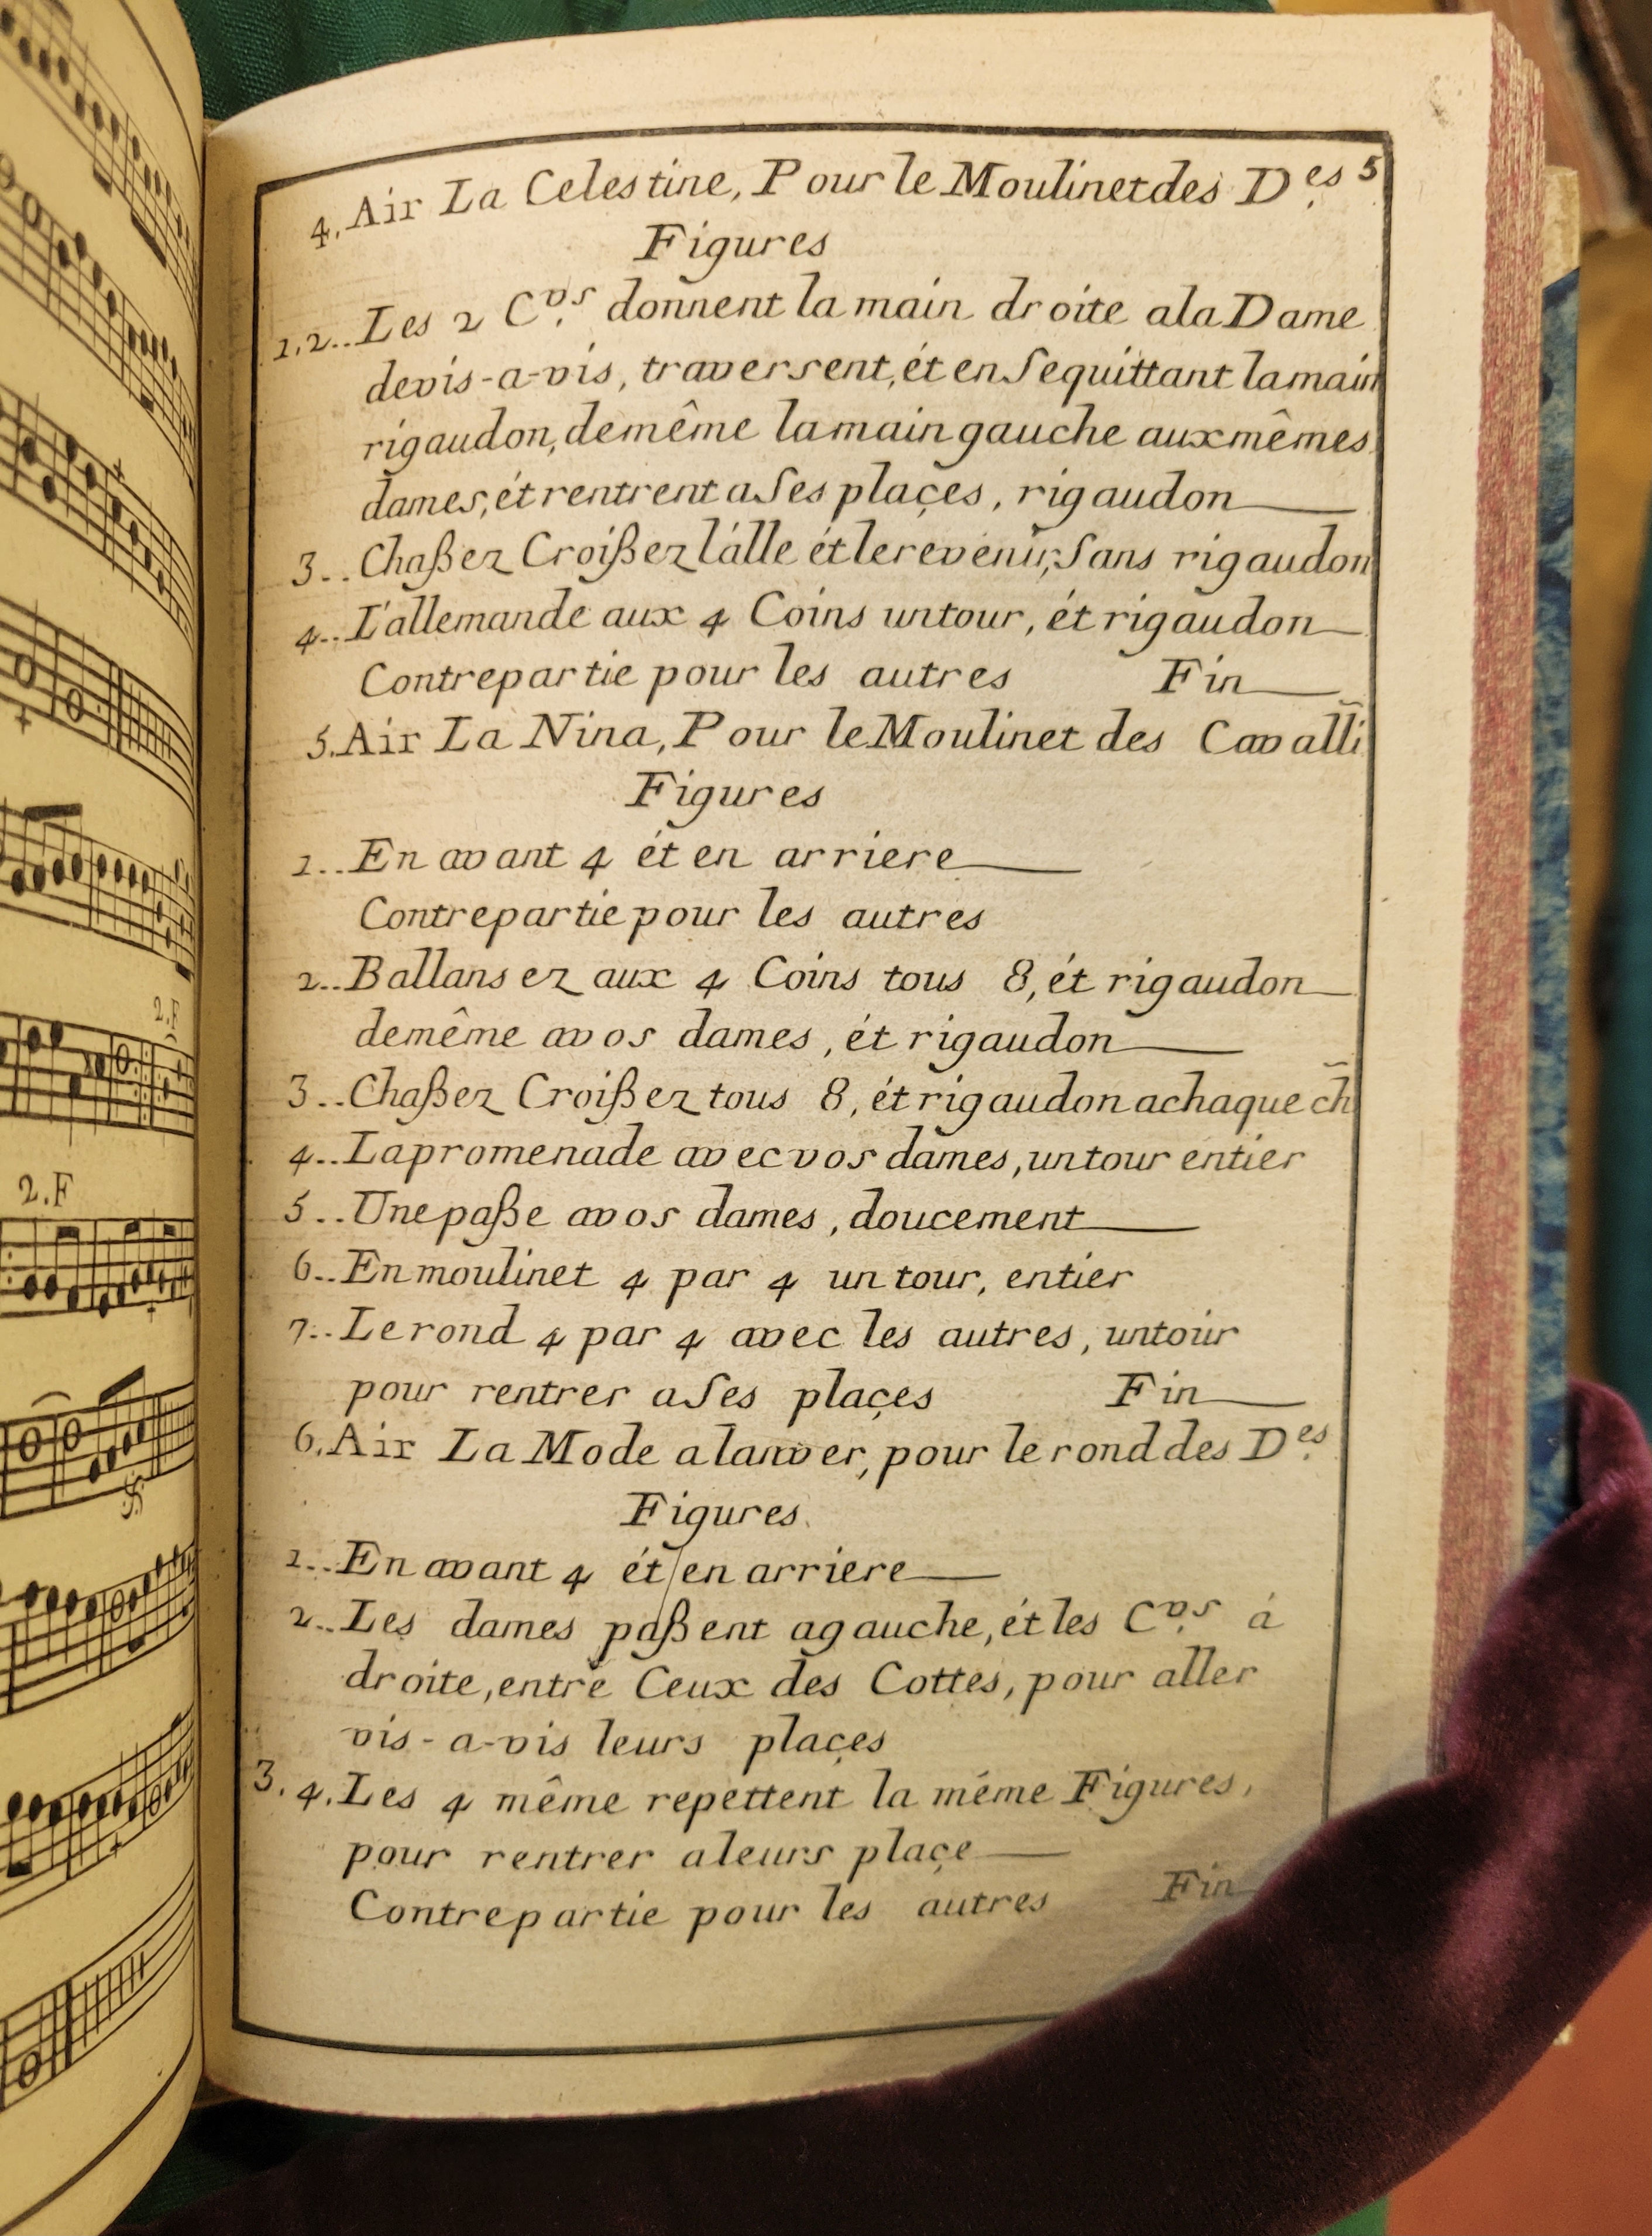 4. Air La Celestine, Pour le Moulinet des D.es 5
Figures
1.2.. Les 2 C.vs donnent la main droite a la Dame
devis-a-vis, traversent, ét en Se quittant la main
rigaudon, de même la main gauche aux mêmes
dames, ét rentrent a Ses plaçes, rigaudon
3.. Chaßez Croißez l'álle ét le revenir, Sans rigaudon
4.. L'allemande aux 4 Coins un tour, ét rigaudon
Contrepartie pour les autres Fin
5. Air La Nina, Pour le Moulinet des Cavalli
Figures
1.. En avant 4 ét en arriere
Contrepartie pour les autres
2.. Ballansez aux 4 Coins tous 8, ét rigaudon
demême a vos dames, ét rigaudon
3.. Chaßez Croißez tous 8, ét rigaudon a chaque ch̃
4.. La promenade avec vos dames, un tour entier
5.. Une paße a vos dames, doucement
6.. En moulinet 4 par 4 un tour, entier
7.. Le rond 4 par 4 avec les autres, un tour
pour rentrer a Ses plaçes Fin
6. Air La Mode a lanver, pour le rond des D.es
Figures.
1.. En avant 4 ét en arriere
2.. Les dames paßent a gauche, ét les C.vs á
droite, entre Ceux des Cottes, pour aller
vis-a-vis leurs plaçes
3.4. Les 4 même repettent la même Figures,
pour rentrer a leurs plaçe
Contrepartie pour les autres Fin
2.F
2.F